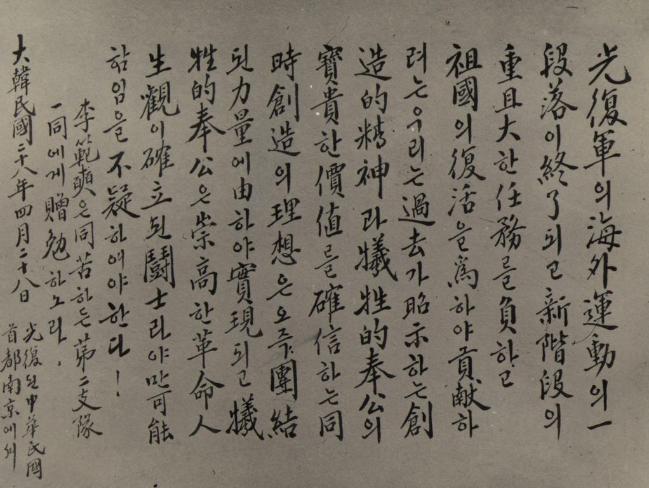 光復軍의 海外運動의 一
段落이 終了되고 新階段의
重且大한 任務를 負하고
祖國의 復活을 爲하야 貢献하
려는 우리는 過去가 昭示하는 創
造的 精神과 犧牲的 奉公의
寶貴한 價値를 確信하는 同
時 創造의 理想은 오즉 團結
된 力量에 由하야 實現되고 犧
牲的 奉公은 崇高한 革命人
生觀이 確立된 鬪士라야만 可能
함임을 不疑하여야 한다!
李範奭은 同苦하든 第二支隊
一同에게 贈勉하노라.
大韓民國二十八年四月二十八日
光復된 中華民國
首都南京에서